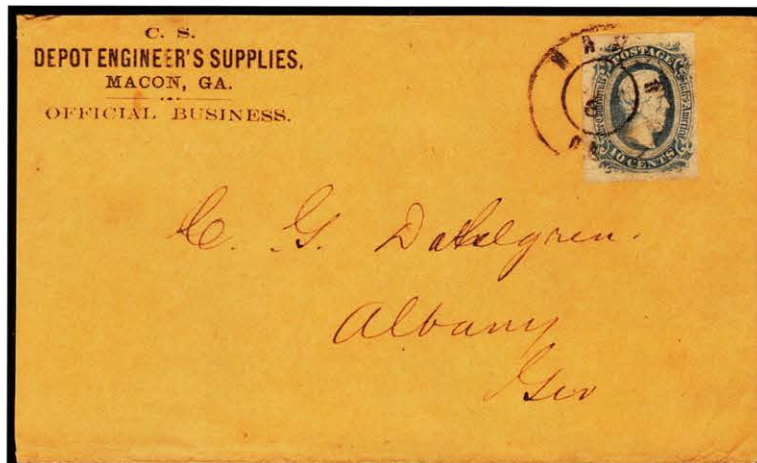 C. S.
DEPOT ENGINEER'S SUPPLIES,
MACON, GA.
OFFICIAL BUSINESS.
POSTAGE
10 CENTS
C. G. Dahlgren.
Albany
Geo